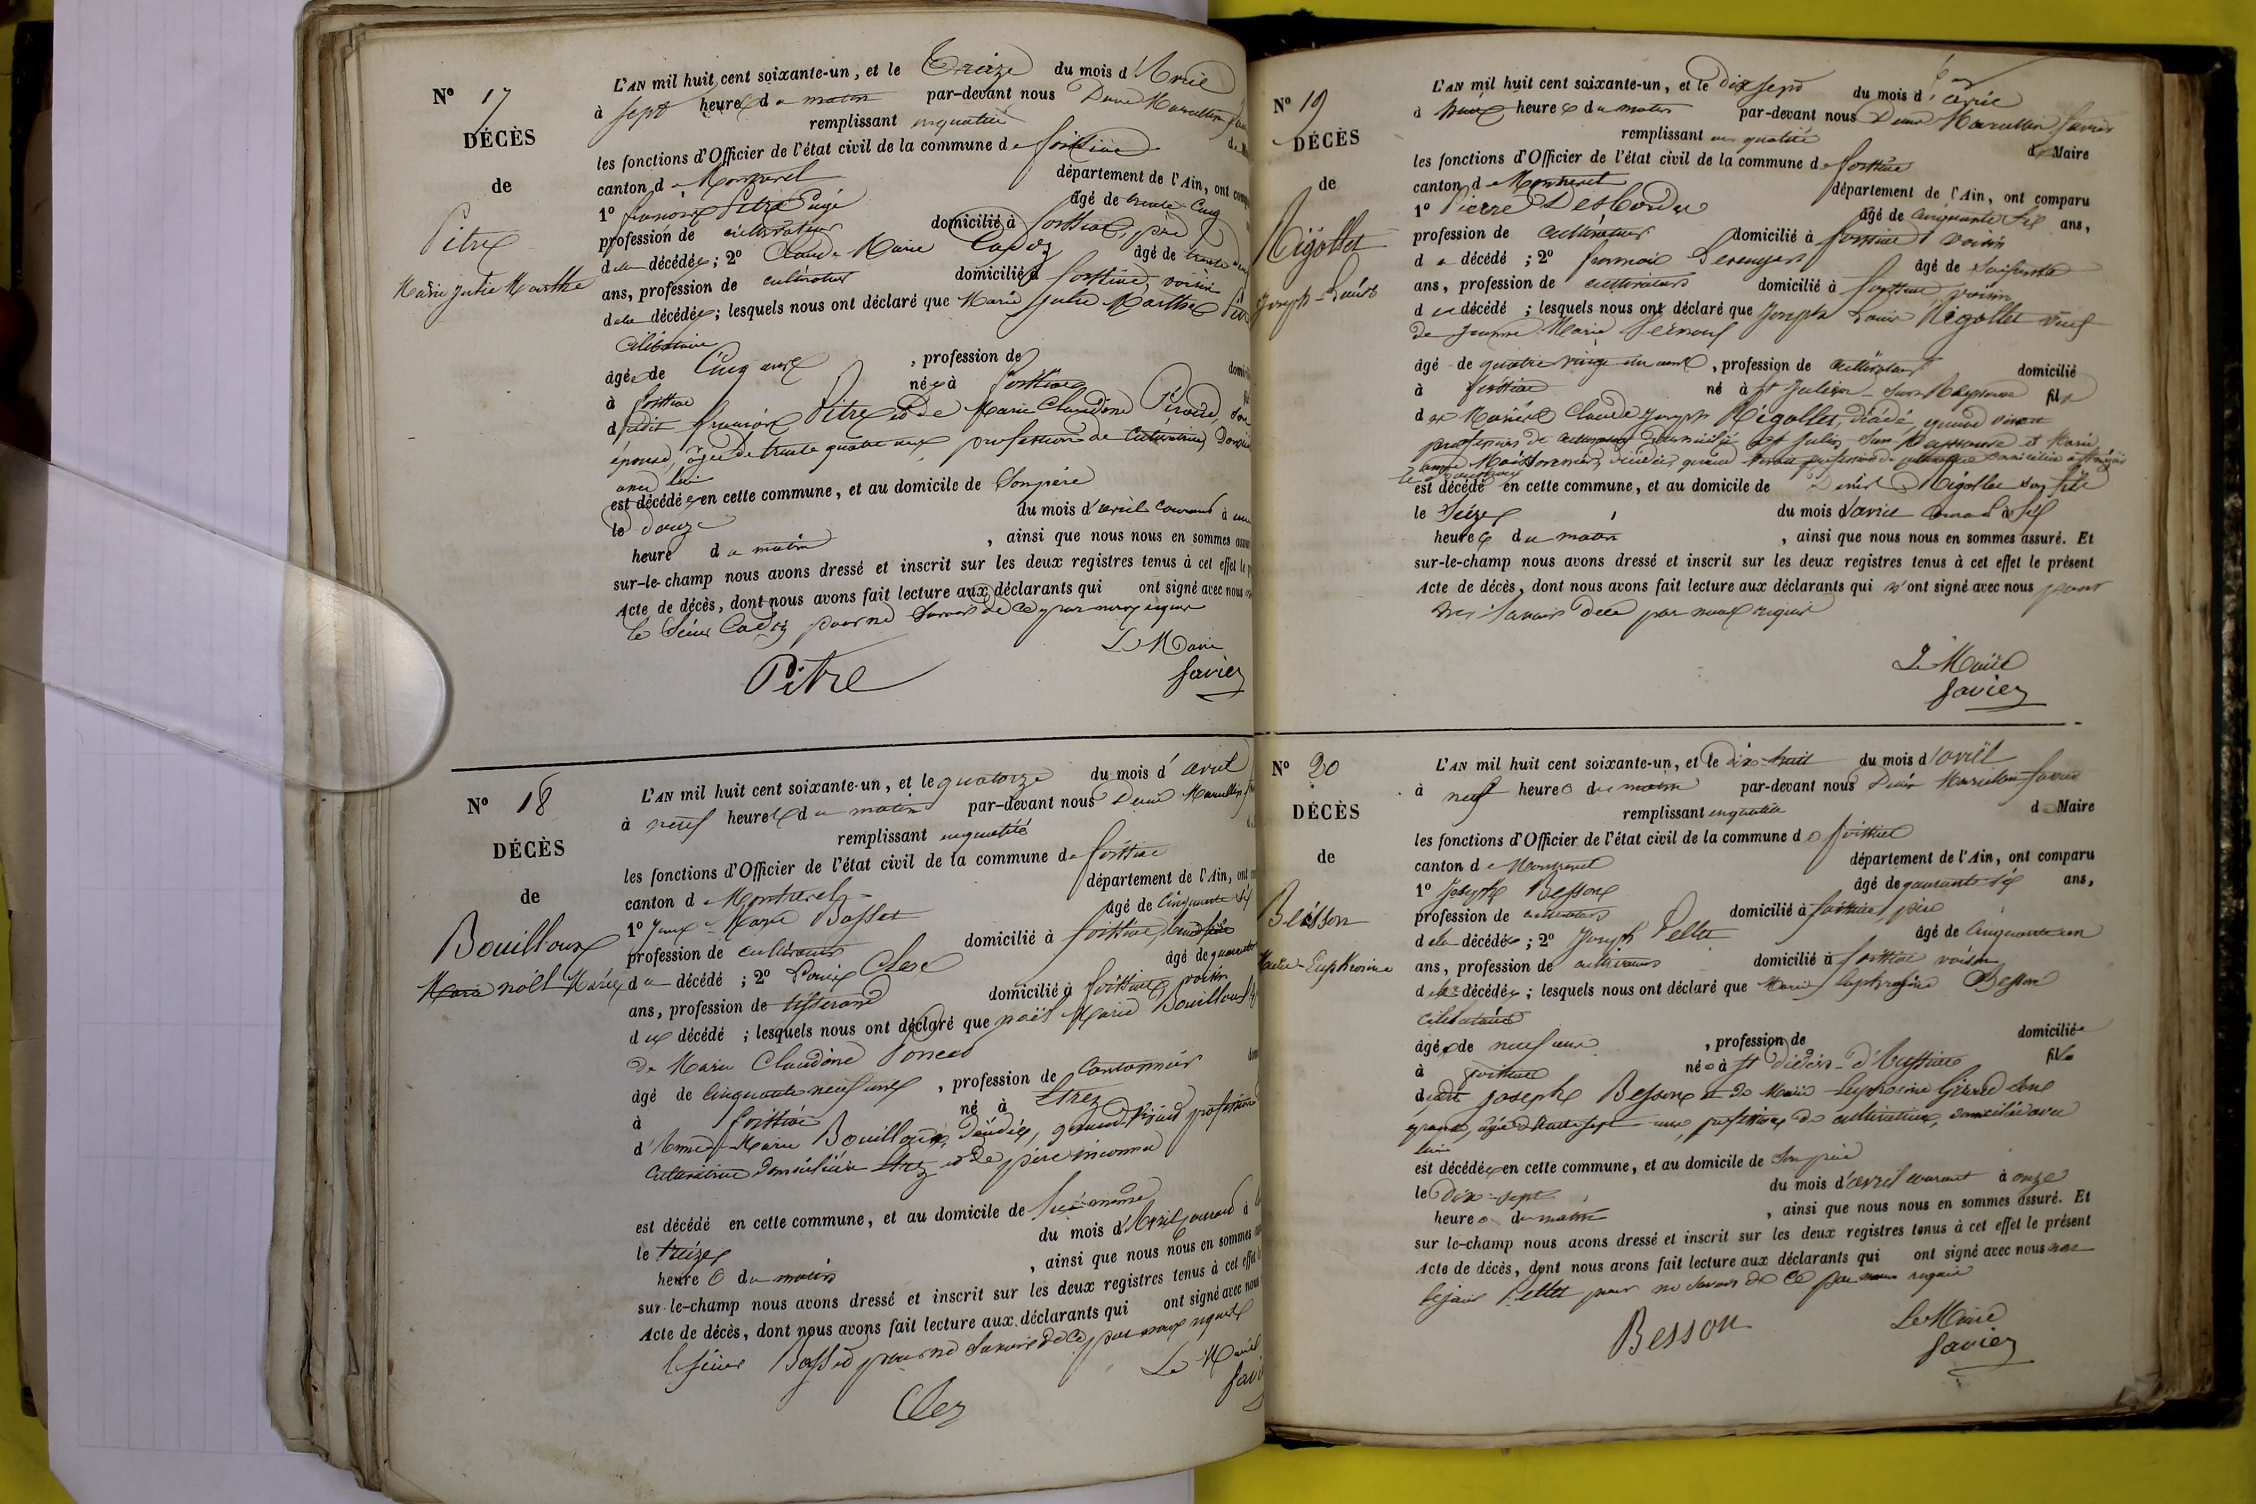 N° 17
DÉCÈS
de
Pitre
Marie Julie Marthe
L'AN mil huit cent soixante-un, et le Treize du mois d'Avril
à sept heures du matin par-devant nous Denis Marcellin
remplissant en qualité
les fonctions d'Officier de l'état civil de la commune de foissiat
canton de Montrevel département de l'Ain, ont
1° françois Pitre âgé de trente cinq
profession de cultivateur domicilié à foissiat, père
de la décédée; 2° Claude Marie Cadoz âgé de trente
ans, profession de cultivateur domicilié à foissiat, voisin
de la décédée; lesquels nous ont déclaré que Marie Julie Marthe
célibataire
âgée de Cinq ans, profession de
à foissiat née à foissiat
dudit françois Pitre et de Marie Claudine
épouse, âgée de trente quatre ans, profession de cultivatrice,
avec lui
est décédée en cette commune, et au domicile de son père
le douze du mois d'avril courant à
heure du matin, ainsi que nous nous en sommes
sur-le-champ nous avons dressé et inscrit sur les deux registres tenus à cet effet le
Acte de décès, dont nous avons fait lecture aux déclarants qui ont signé avec nous
le sieur Cadoz pour ne savoir de ce par nous requis
Le Maire
Pitre
favier
N° 18
DÉCÈS
de
Bouilloux
noël Marie
L'AN mil huit cent soixante-un, et le quatorze du mois d'avril
à neuf heures du matin par-devant nous Denis Marcellin
remplissant en qualité
les fonctions d'Officier de l'état civil de la commune de foissiat
canton de Montrevel département de l'Ain, ont
1° Marie Basset âgé de cinquante six
profession de cultivateur domicilié à foissiat,
du décédé; 2° Louis Clerc âgé de
ans, profession de tisserand domicilié à foissiat, voisin
du décédé; lesquels nous ont déclaré que noël Marie Bouilloux
de Marie Claudine Poncet
âgé de cinquante neuf ans, profession de cantonnier
à foissiat né à Etrez
d' Marie Bouilloux, décédée, quand vivait profession
cultivatrice domiciliée à Etrez et de père inconnu
est décédé en cette commune, et au domicile de lui même
le treize du mois d'Avril courant à
heure du matin, ainsi que nous nous en sommes
sur-le-champ nous avons dressé et inscrit sur les deux registres tenus à cet effet
Acte de décès, dont nous avons fait lecture aux déclarants qui ont signé avec nous
le sieur Basset pour ne savoir de ce par nous requis
Le Maire
Clerc
N° 19
DÉCÈS
de
Rigollet
Joseph-Louis
L'AN mil huit cent soixante-un, et le dix sept du mois d'avril
à heures du matin par-devant nous Denis Marcellin favier
remplissant en qualité de Maire
les fonctions d'Officier de l'état civil de la commune de foissiat
canton de Montrevel département de l'Ain, ont comparu
1° Pierre Desbordes âgé de cinquante six ans,
profession de cultivateur domicilié à foissiat, voisin
du décédé; 2° françois âgé de soixante
ans, profession de cultivateur domicilié à foissiat, voisin
du décédé; lesquels nous ont déclaré que Joseph Louis Rigollet veuf
de Jeanne Marie
âgé de quatre vingt un ans, profession de cultivateur domicilié
à foissiat né à St Julien-sur-Reyssouze fils
de Claude Joseph Rigollet, décédé, quand vivait
profession de cultivateur domicilié à St Julien-sur-Reyssouze et Marie
est décédé en cette commune, et au domicile de Denis Rigollet son fils
le seize du mois d'avril courant à six
heures du matin, ainsi que nous nous en sommes assuré. Et
sur-le-champ nous avons dressé et inscrit sur les deux registres tenus à cet effet le présent
Acte de décès, dont nous avons fait lecture aux déclarants qui n'ont signé avec nous pour
ne savoir de ce par nous requis
Le Maire
favier
N° 20
DÉCÈS
de
Besson
Marie-Euphrosine
L'AN mil huit cent soixante-un, et le dix-huit du mois d'avril
à neuf heures du matin par-devant nous Denis Marcellin favier
remplissant en qualité de Maire
les fonctions d'Officier de l'état civil de la commune de foissiat
canton de Montrevel département de l'Ain, ont comparu
1° Joseph Besson âgé de quarante six ans,
profession de cultivateur domicilié à foissiat, père
de la décédée; 2° Joseph Pellet âgé de cinquante un
ans, profession de cultivateur domicilié à foissiat voisin
de la décédée; lesquels nous ont déclaré que Marie Euphrosine Besson
célibataire
âgée de neuf ans, profession de domiciliée
à foissiat née à St Didier-d'Aussiat fille
dudit Joseph Besson et de Marie Euphrosine son
épouse, âgée de trente sept ans, profession de cultivatrice, domiciliée avec
lui
est décédée en cette commune, et au domicile de son père
le dix-sept du mois d'avril courant à onze
heures du matin, ainsi que nous nous en sommes assuré. Et
sur-le-champ nous avons dressé et inscrit sur les deux registres tenus à cet effet le présent
Acte de décès, dont nous avons fait lecture aux déclarants qui ont signé avec nous non
le sieur Pellet pour ne savoir de ce par nous requis
Le Maire
Besson
favier